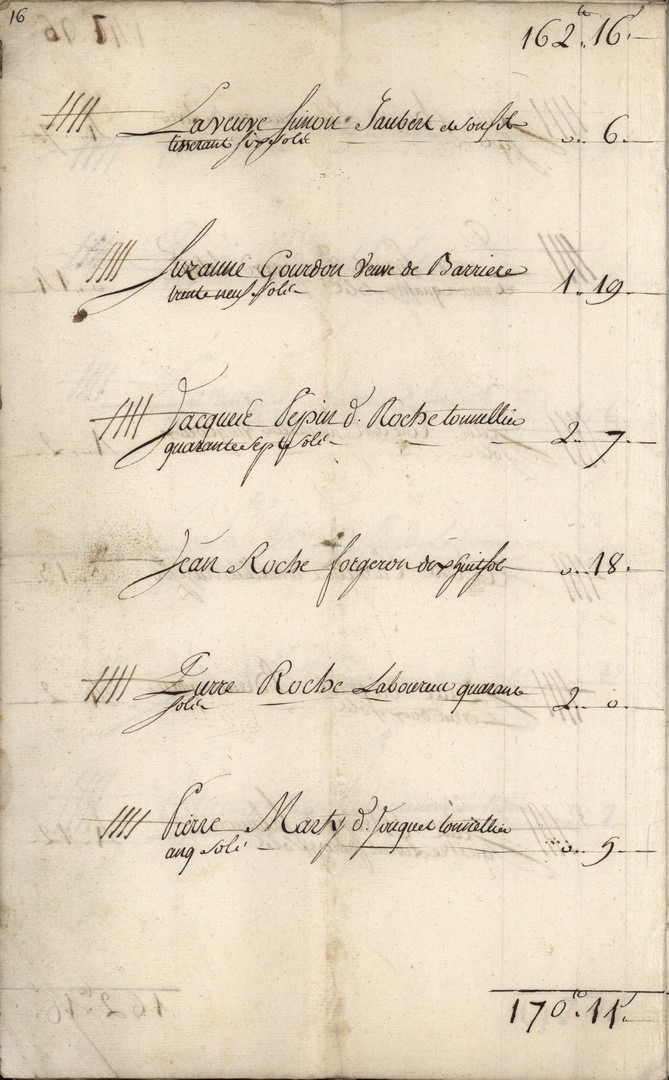 16
162.. 16 s
La veuve Simon Jaubert et son fils
tisserant six sols 0.. 6.
Suzanne Gourdon veuve de Barriere
trente neuf sols 1.. 19
Jacques Pepin d. Roche tonnellier
quarante sept sols 2.. 7
Jean Roche forgeron dix huit sols 0.. 18.
Pierre Roche Laboureur quarante
sols 2.. 0.
Pierre Marty d. Jouquet tonnellier
cinq sols 0.. 5
170.. 11 s